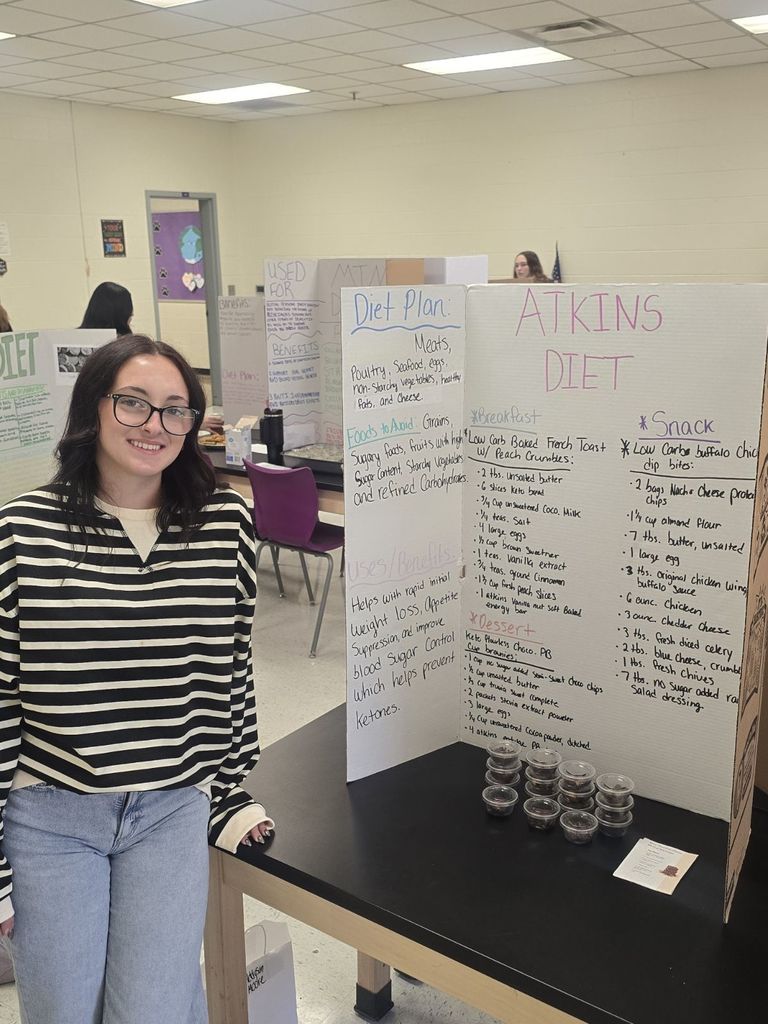 Diet Plan:
Meats,
Poultry, Seafood, eggs,
non-starchy vegetables, healthy
fats, and cheese.
Foods to Avoid: Grains,
Sugary foods, fruits with high
Sugar content, Starchy Vegetables
and refined Carbohydrates.
Uses/Benefits:
Helps with rapid initial
weight loss, Appetite
Suppression, and improve
blood Sugar Control
which helps prevent
ketones.
ATKINS
DIET
*Breakfast
Low Carb Baked French Toast
w/ Peach Crumbles:
• 2 tbs. unsalted butter
• 6 slices keto bread
• 3/4 cup unsweetened Coco. Milk
• 1/4 teas. Salt
• 4 large eggs
• 1/2 cup brown Sweetner
• 1 teas. Vanilla extract
• 3/4 teas. ground Cinnamon
cup fresh peach slices
• 1 atkins Vanilla nut soft Baked
energy bar
*Dessert
Keto Flourless Choco. PB
Cup brownies:
• 1 cup no sugar added semi-sweet choco chips
• 1/2 cup unsalted butter
cup truvia sweet complete
• 2 packets stevia extract powder
• 3 large eggs
• 1/4 cup unsweetened Cocoa powder, dutched
• 4 atkins PB
* Snack
* Low Carb buffalo chic
dip bites:
• 2 bags Nacho Cheese protein
chips
• 1 1/4 cup almond flour
• 7 tbs. butter, unsalted
• 1 large egg
• 3 tbs. original chicken wing
buffalo sauce
• 6 ounc. chicken
• 3 ounc. chedder cheese
• 3 tbs. fresh diced celery
• 2 tbs. blue cheese, crumbl
• 1 tbs. fresh chives
• 7 tbs. no sugar added ra
Salad dressing.
USED
FOR
BENEFITS
Benefits:
Diet Plan:
MIN
DIET